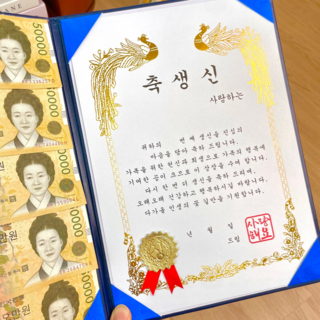 축생신
사랑하는
귀하의 번 째 생신을 진심의
마음을 담아 축하 드립니다.
가족을 위한 헌신과 희생으로 가족의 행복에
기여한 공이 크므로 이 상장을 수여 합니다.
다시 한 번 더 생신을 축하 드리며,
오래오래 건강하고 행복하시길 바랍니다.
다가올 인생의 꽃 길만을 기원합니다.
년 월 일
드림
사랑
해요
50000